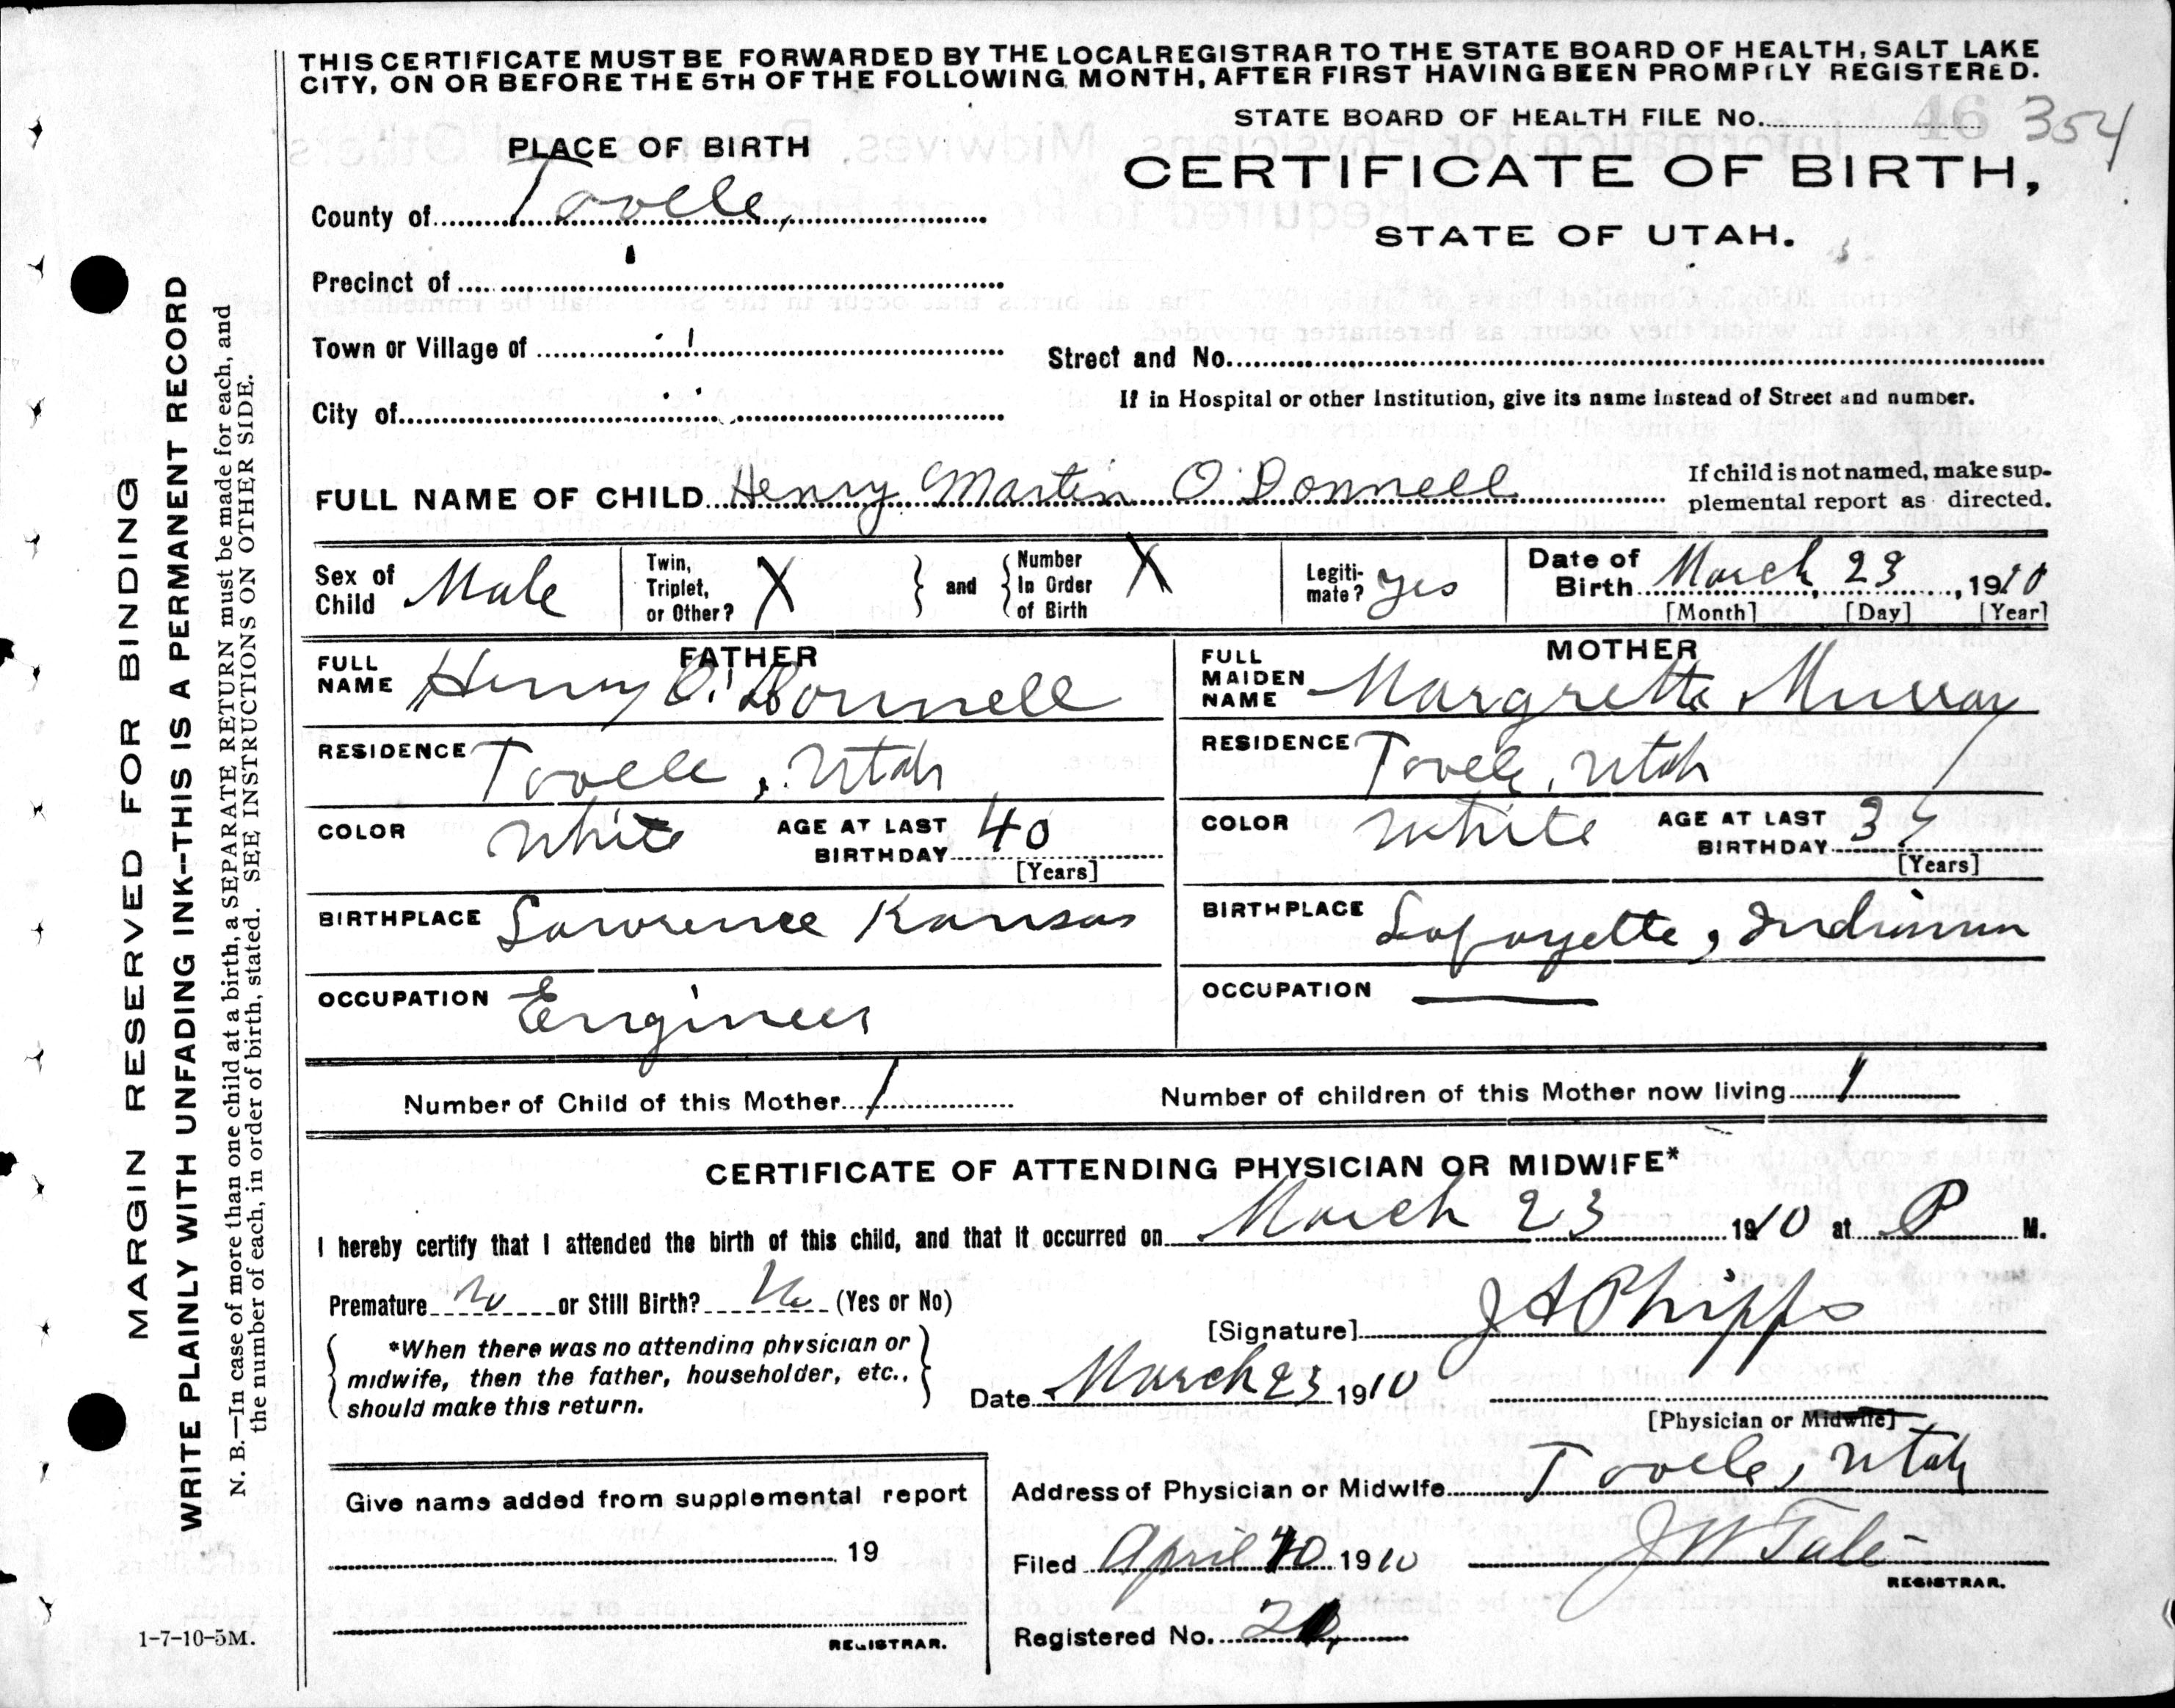 THIS CERTIFICATE MUST BE FORWARDED BY THE LOCAL REGISTRAR TO THE STATE BOARD OF HEALTH, SALT LAKE
CITY, ON OR BEFORE THE 5TH OF THE FOLLOWING MONTH, AFTER FIRST HAVING BEEN PROMPTLY REGISTERED.
STATE BOARD OF HEALTH FILE No. 46 354
PLACE OF BIRTH
CERTIFICATE OF BIRTH,
STATE OF UTAH.
County of Tooele,
Precinct of "
Town or Village of "
Street and No.
City of "
If in Hospital or other Institution, give its name instead of Street and number.
FULL NAME OF CHILD Henry Martin O'Donnell
If child is not named, make sup-
plemental report as directed.
Sex of Child Male
Twin, Triplet, or Other? X
and
Number In Order of Birth X
Legiti-mate? yes
Date of Birth March 23, 1910
[Month] [Day] [Year]
FATHER
FULL NAME Henry O'Donnell
RESIDENCE Tooele, Utah
COLOR White AGE AT LAST BIRTHDAY 40
[Years]
BIRTHPLACE Lawrence Kansas
OCCUPATION Engineer
MOTHER
FULL MAIDEN NAME Margrette Murray
RESIDENCE Tooele, Utah
COLOR White AGE AT LAST BIRTHDAY
[Years]
BIRTHPLACE Lafayette, Indiana
OCCUPATION —
Number of Child of this Mother 1
Number of children of this Mother now living 1
CERTIFICATE OF ATTENDING PHYSICIAN OR MIDWIFE*
I hereby certify that I attended the birth of this child, and that it occurred on March 23 1910 at P M.
Premature No or Still Birth? No (Yes or No)
*When there was no attending physician or
midwife, then the father, householder, etc.,
should make this return.
[Signature] J A Phipps
Date March 23 1910
[Physician or Midwife]
Address of Physician or Midwife Tooele, Utah
Give name added from supplemental report
19
REGISTRAR.
Filed April 10 1910 J W Tate
REGISTRAR.
Registered No.
1-7-10-5M.
MARGIN RESERVED FOR BINDING
WRITE PLAINLY WITH UNFADING INK—THIS IS A PERMANENT RECORD
N. B.—In case of more than one child at a birth, a SEPARATE RETURN must be made for each, and
the number of each, in order of birth, stated. SEE INSTRUCTIONS ON OTHER SIDE.